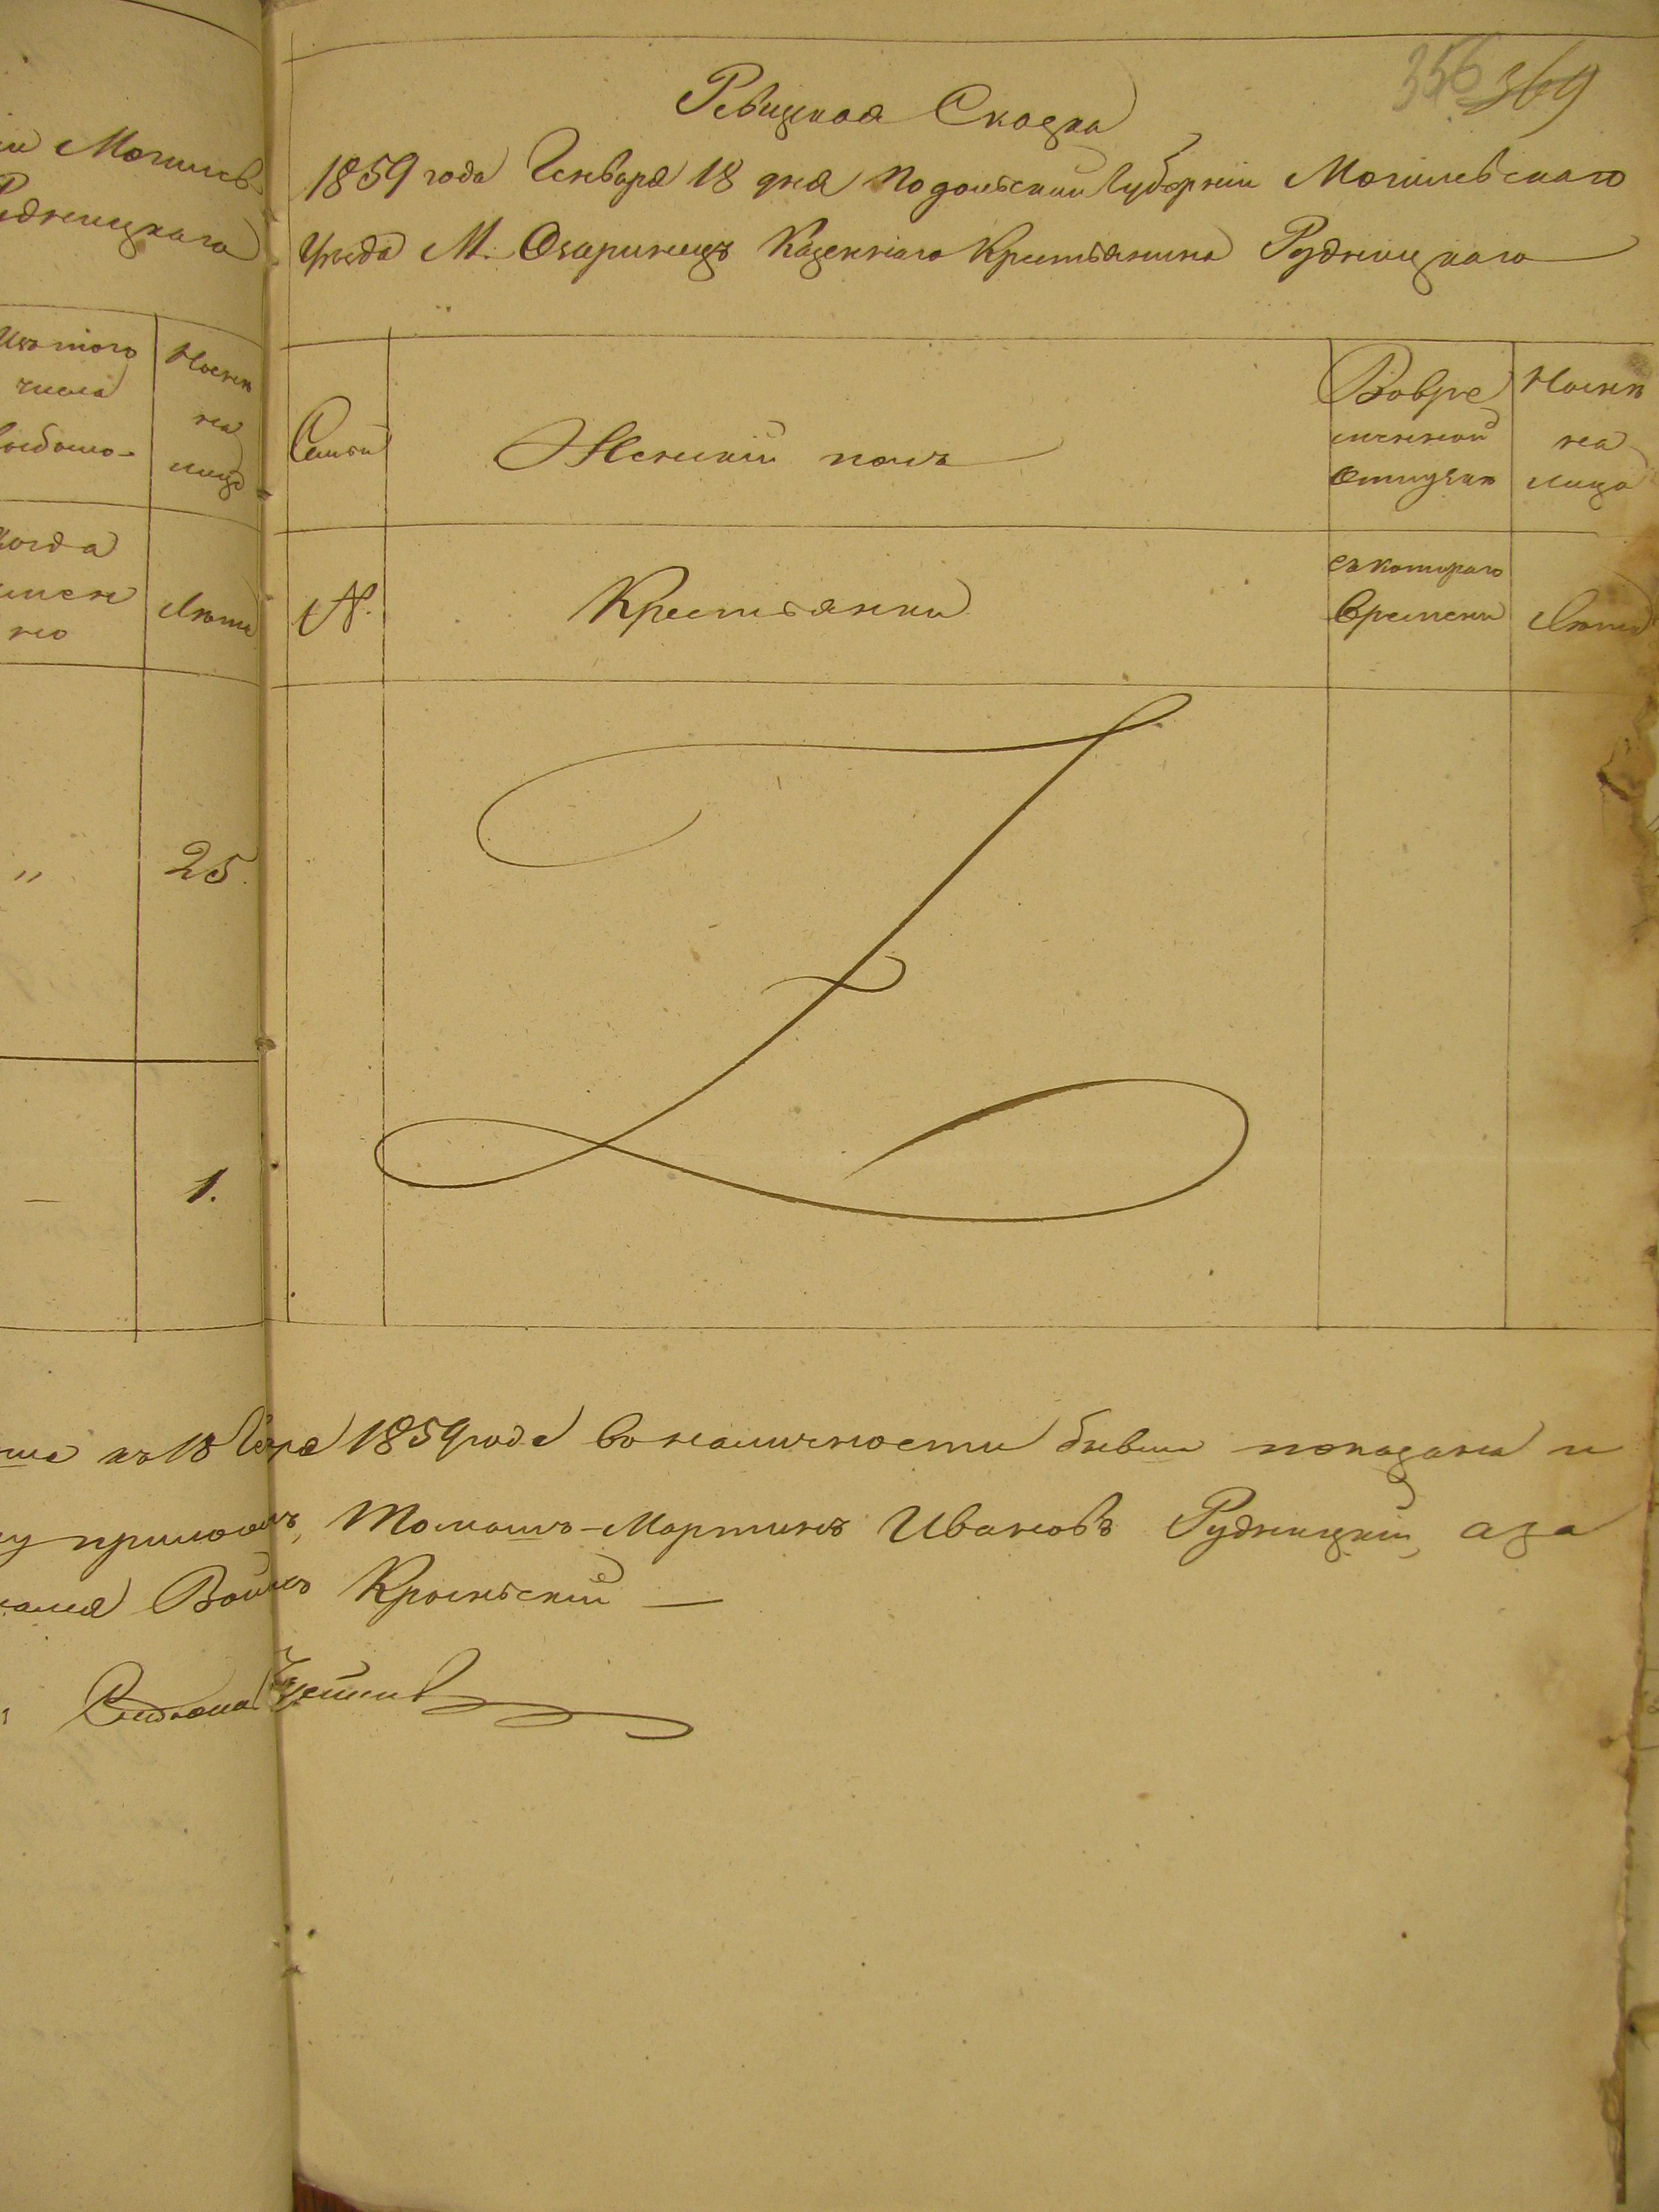 356 369
Ревизкая Сказка
1859 года Генваря 18 дня Подольской Губерніи Могилевскаго
Уѣзда М. Озаринецъ Казеннаго Крестьянина Рудницкаго
Семьи
Женскій полъ
Вовре
менной
отлучкѣ
Нынѣ
на
лицо
№.
Крестьянки
съ котораго
времени
Лѣта
и Могилев-
Рудницкаго
Изъ того
числа
выбыло-
Нынѣ
на
лицо
Когда
имен
но
Лѣта
" 25.
— 1.
къ 18 Генря 1859 года в наличности бывши показаны и
Томашъ-Мартинъ Ивановъ Рудницкій, а за
Войтъ